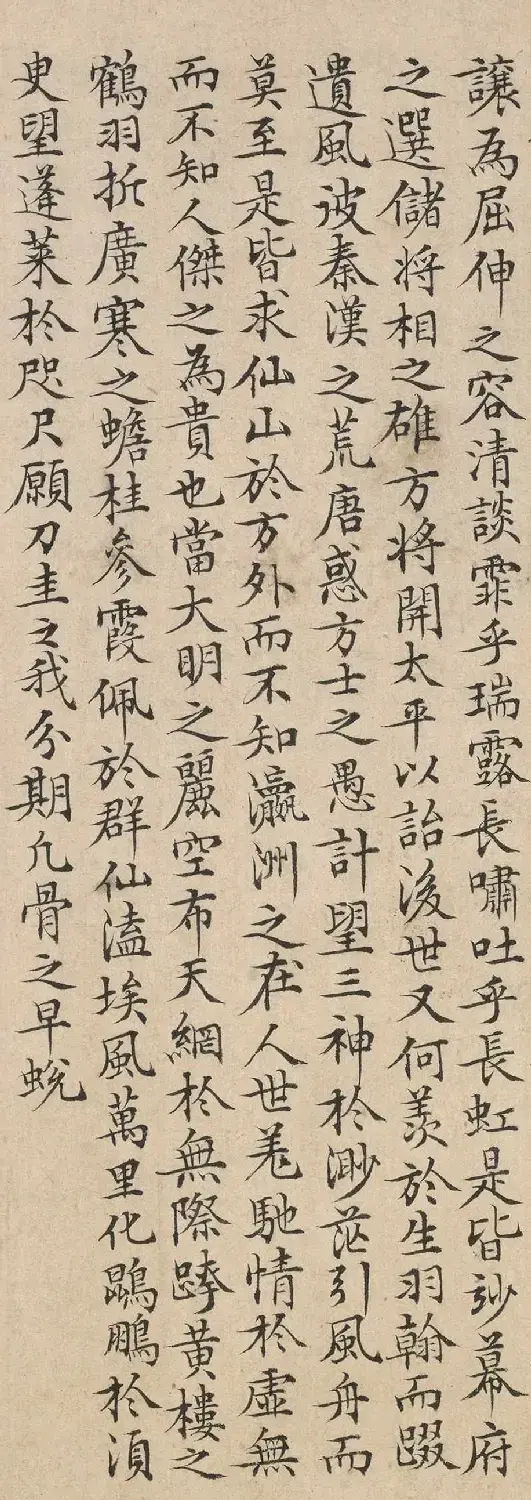 讓為屈伸之容清談霏乎瑞露長嘯吐乎長虹是皆妙幕府
之選儲將相之雄方將開太平以詒後世又何羨於生羽翰而躡
遺風彼秦漢之荒唐惑方士之愚計望三神於渺茫引風舟而
莫至是皆求仙山於方外而不知瀛洲之在人世羌馳情於虛無
而不知人傑之為貴也當大明之麗空布天網於無際跨黃樓之
鶴羽折廣寒之蟾桂參霞佩於群仙溘埃風萬里化鵾鵬於須
臾望蓬萊於咫尺願刀圭之我分期凡骨之早蛻